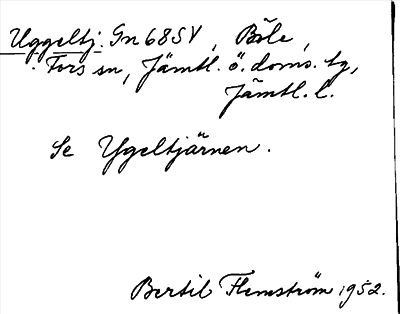 Uggeltj. Gn 68SV, Böle,
Fors sn, Jämtl. ö. doms. tg,
Jämtl. l.
Se Yggeltjärnen.
Bertil Flemström 1952.